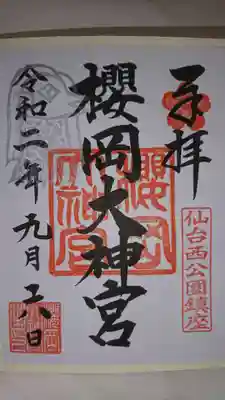 奉拝
仙台西公園鎮座
櫻岡大神宮
令和二年九月六日